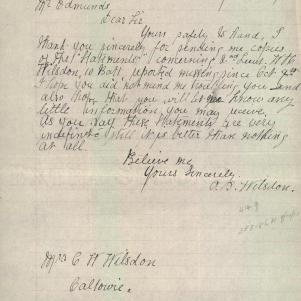 Mr Edmunds,
Dear Sir
Yours safely to hand, I
thank you sincerely for sending me copies
of the "Statements" concerning 2nd Lieut. W.K.
Wilsdon, 10 Batt, reported missing since Oct
I hope you did not mind me troubling you, and
also hope that you will let me know any
little information you may receive,
As you say these statements are very
indefinite still it is better than nothing
at all.
Believe me
Yours Sincerely.
Wilsdon.
Mrs C. H Wilsdon
Caltowie.